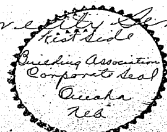 West Side
Building Association
Corporate Seal
Omaha
Neb